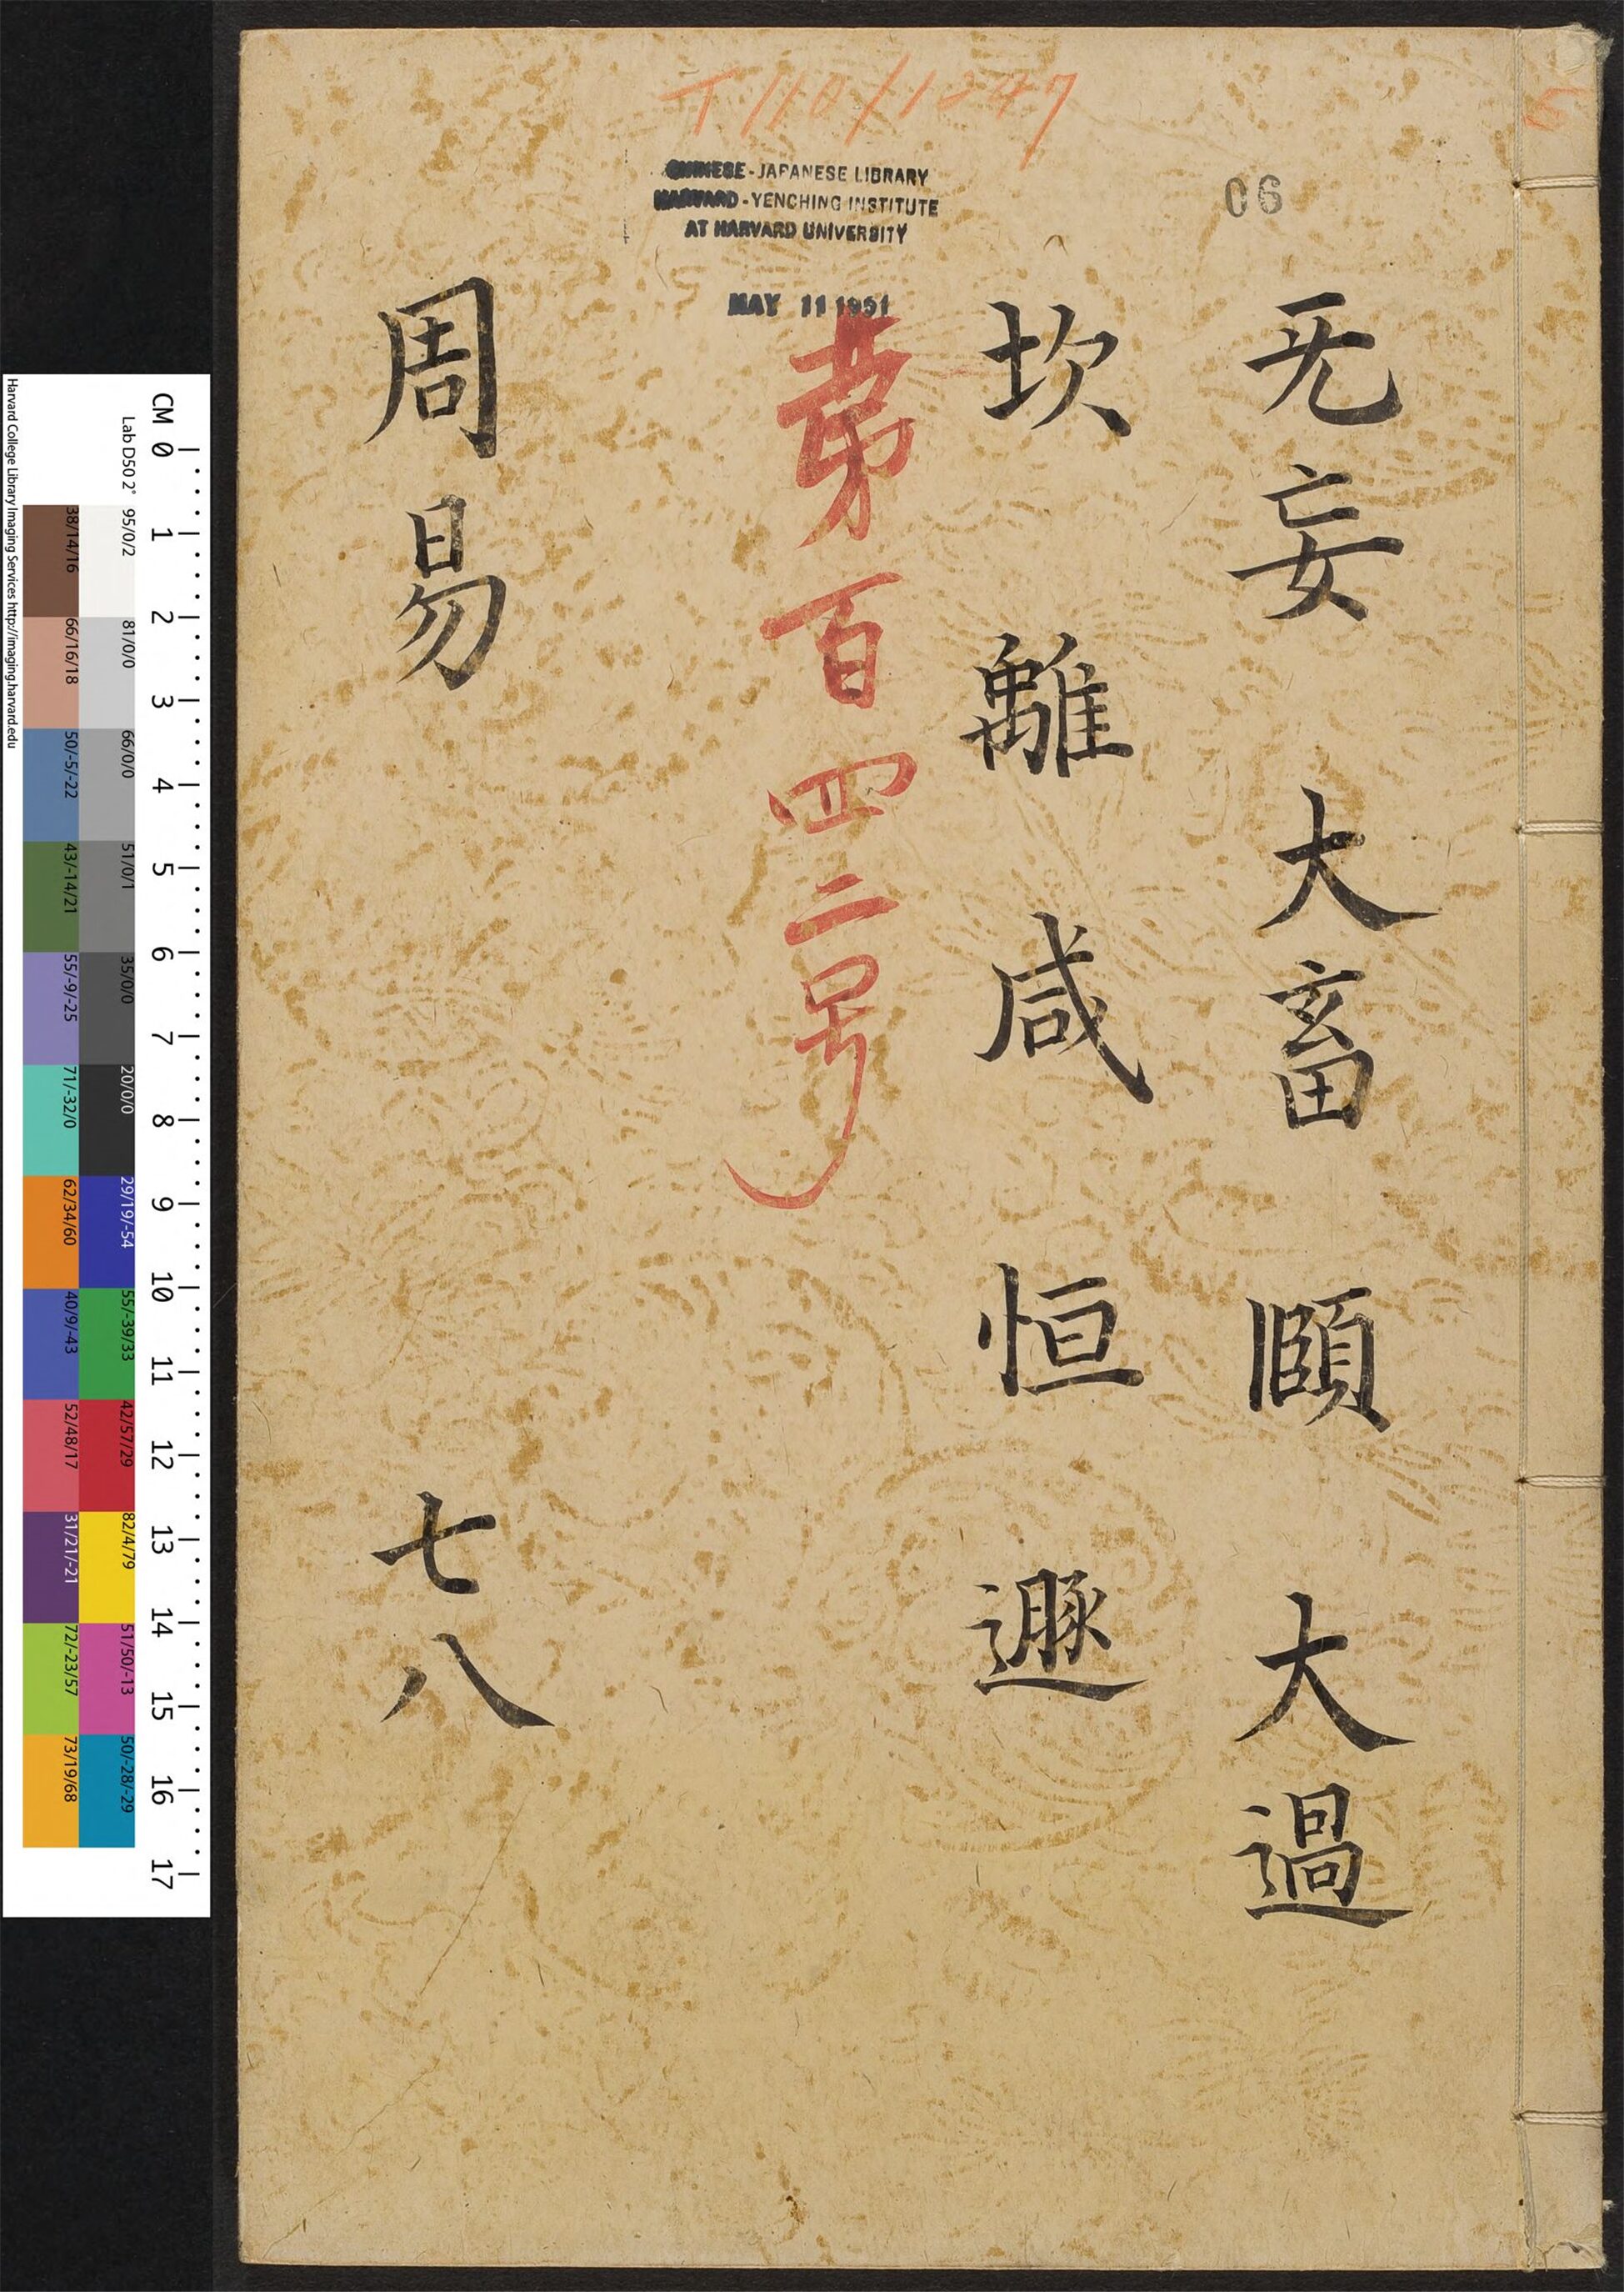 T 110/1247
6
CHINESE-JAPANESE LIBRARY
HARVARD-YENCHING INSTITUTE
AT HARVARD UNIVERSITY
MAY 11 1951
06
无妄 大畜 頤 大過
坎 離 咸 恒 遯
第百四二号
周易 七八
CM 0 1 2 3 4 5 6 7 8 9 10 11 12 13 14 15 16 17
Lab D50 2° 95/0/2 81/0/0 66/0/0 51/0/1 35/0/0 20/0/0 29/19/-54 55/-39/33 42/57/29 82/4/79 51/50/-13 50/-28/-29
38/14/16 66/16/18 50/-5/-22 43/-14/21 55/-9/-25 71/-32/0 62/34/60 40/9/-43 52/48/17 31/21/-21 72/-23/57 73/19/68
Harvard College Library Imaging Services http://imaging.harvard.edu